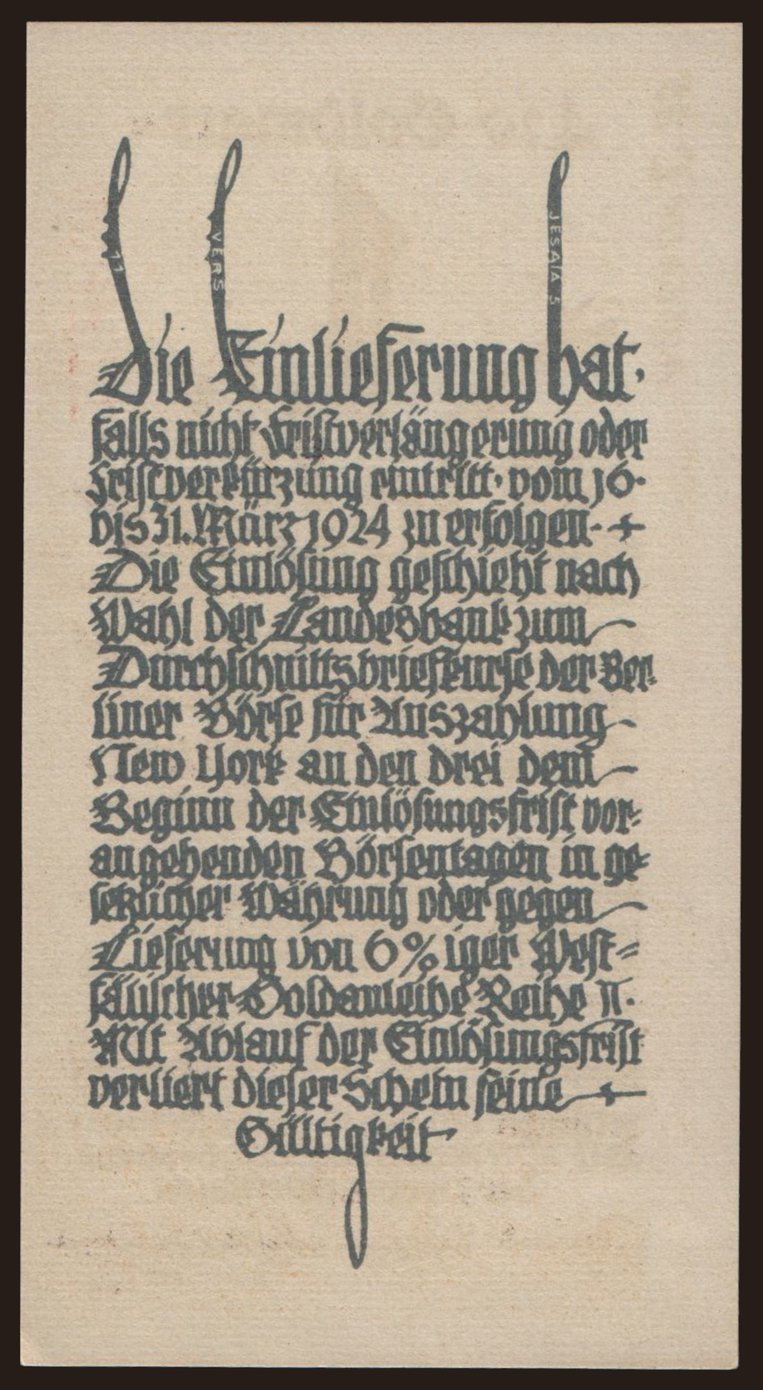 11
VERS
JESAIA 5
Die Einlieferung hat·
falls nicht Fristverlängerung oder
Fristverkürzung eintritt· vom 16·
bis 31. März 1924 zu erfolgen·
Die Einlösung geschieht nach
Wahl der Landesbank zum
Durchschnittsbriefkurse der Ber-
liner Börse für Auszahlung
New York an den drei dem
Beginn der Einlösungsfrist vor-
angehenden Börsentagen in ge-
setzlicher Währung oder gegen
Lieferung von 6% iger West-
fälischer Goldanleihe Reihe II·
Mit Ablauf der Einlösungsfrist
verliert dieser Schein seine
Gültigkeit